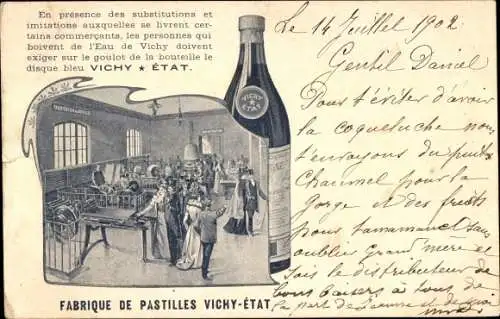 En présence des substitutions et
imitations auxquelles se livrent cer-
tains commerçants, les personnes qui
boivent de l'Eau de Vichy doivent
exiger sur le goulot de la bouteille le
disque bleu VICHY ★ ÉTAT.
VICHY
ÉTAT
FABRIQUE DE PASTILLES VICHY-ÉTAT
Le 14 Juillet 1902
Gentil Daniel
Pour t'éviter d'avoir
la coqueluche nous
t'envoyons du
pour la
gorge et des fruits
pour ta maman sans
oublier Grand mère
Sois le distributeur de
bons baisers à tous de
la part de et de